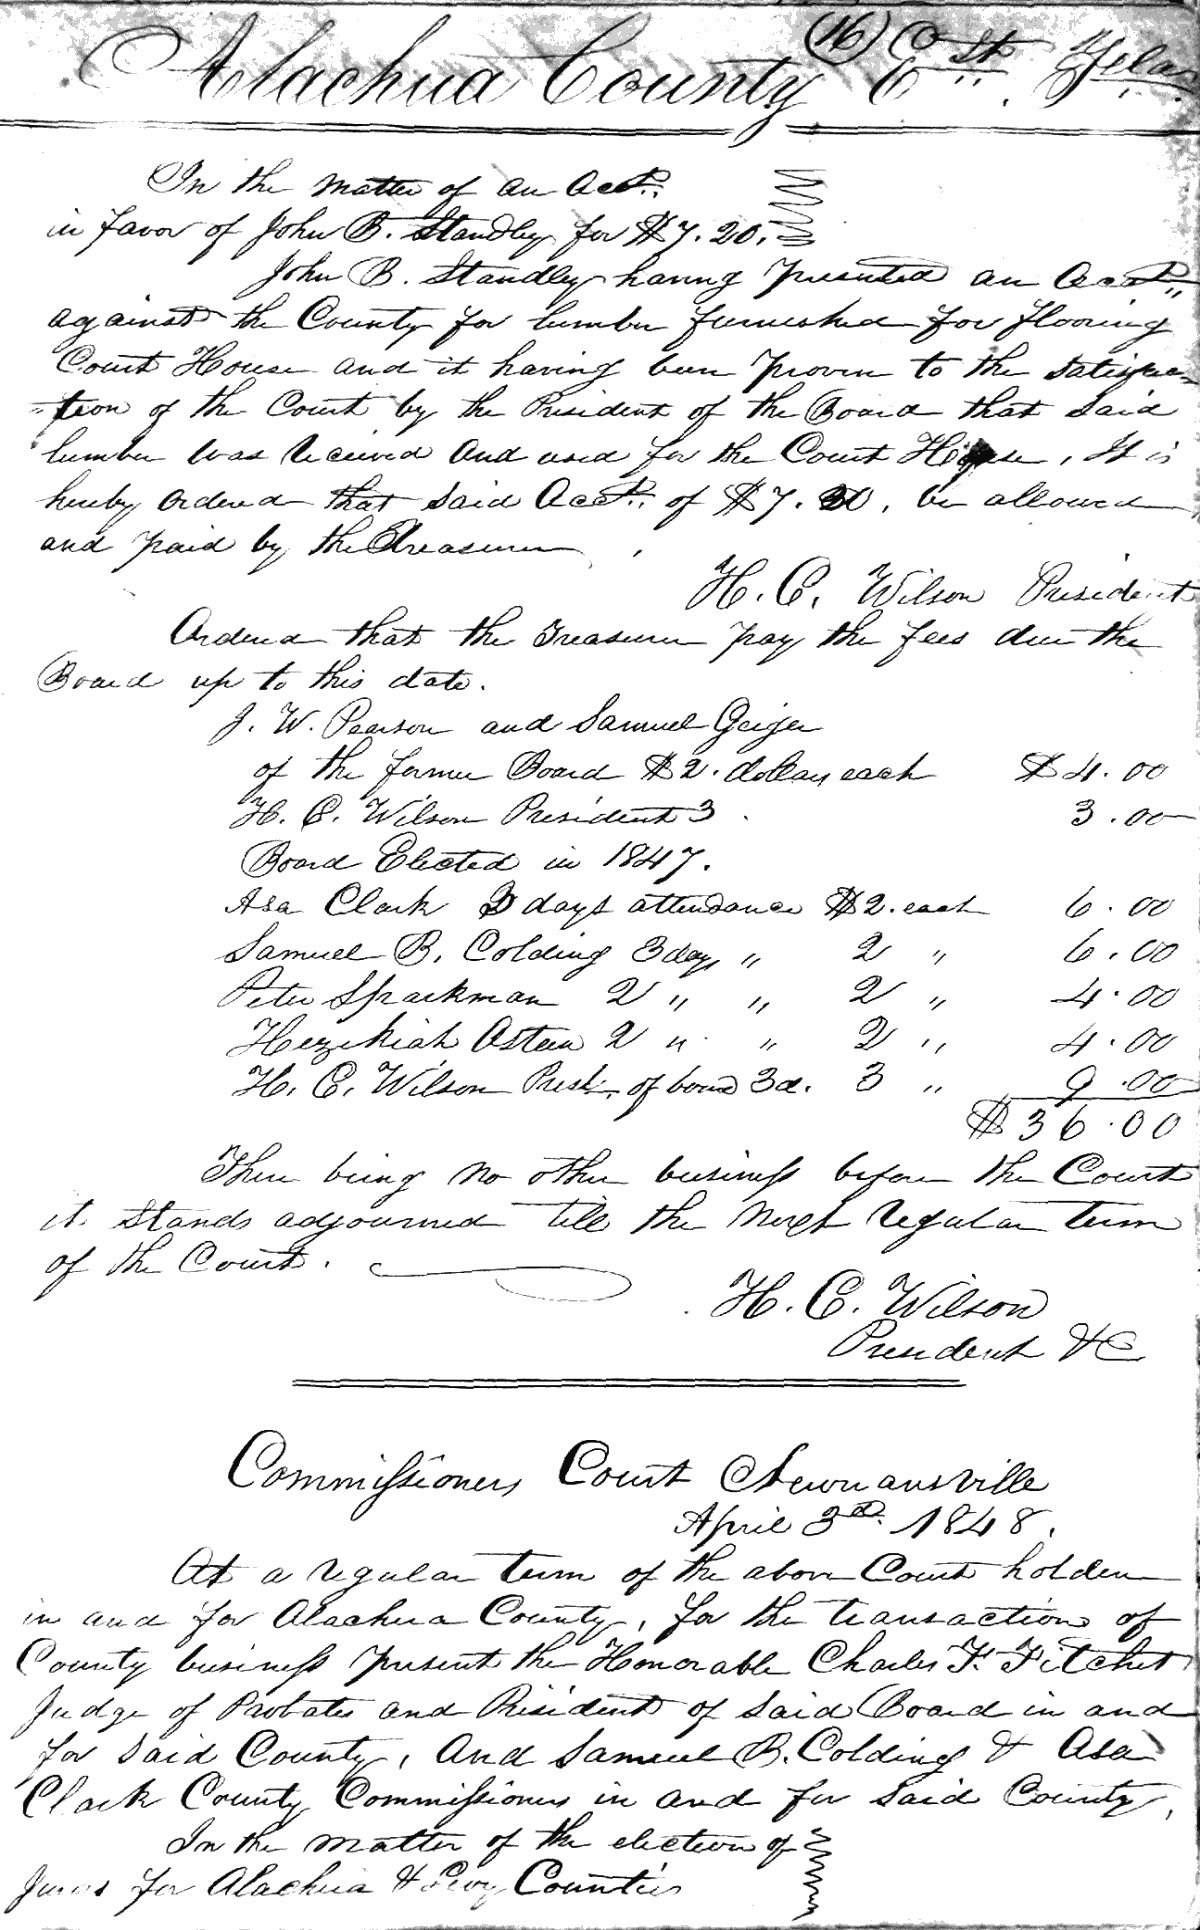 (16)
Alachua County Ct. Fla.
In the matter of an Acct.
in favor of John B. Standley for $7.20.
John B. Standley having presented an Acct.
against the County for lumber furnished for flooring
Court House and it having been proven to the Satisfac-
-tion of the Court by the President of the Board that Said
lumber was received and used for the Court House, It is
hereby ordered that Said Acct. of $7.20, be allowed
and paid by the Treasurer.
H. C. Wilson President
Ordered that the Treasurer pay the fees due the
Board up to this date.
J. W. Pearson and Samuel Geiger
of the former Board $2. dollars each $4.00
H. C. Wilson President 3 3.00
Board Elected in 1847.
Asa Clark 3 days attendance $2. each 6.00
Samuel B. Colding 3 days " 2 " 6.00
Peter Sparkman 2 " " 2 " 4.00
Hezekiah Osteen 2 " " 2 " 4.00
H. C. Wilson Prest. of board 3 d. 3 " 9.00
$36.00
There being no other business before the Court
it Stands adjourned till the Next regular term
of the Court.
H. C. Wilson
President &C
Commissioners Court Newnansville
April 3rd. 1848.
At a regular term of the above Court holden
in and for Alachua County, for the transaction of
County business present the Honorable Charles F. Fitchet
Judge of Probates and President of Said Board in and
for Said County, And Samuel B. Colding & Asa
Clark County Commissioners in and for Said County,
In the matter of the election of
Jurors for Alachua & Levy Counties